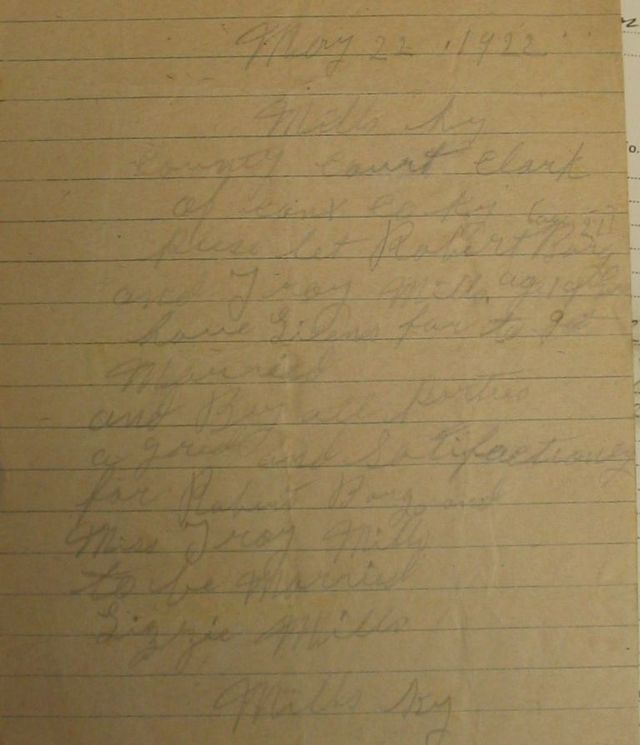 May 22 1922
Mills Ky
County Court Clark
of Conx Co Ky
let Robert Bary
and Troy Mills age 19
have Lisens for to get
Married
and By all parties
a greed and Satifactionary
for Robert Barg and
Miss Troy Mills
to be Married
Lizzie Mills
Mills Ky